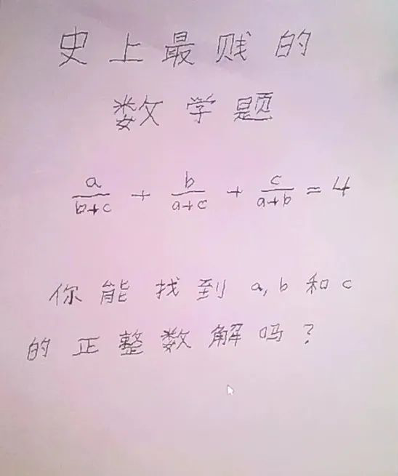 史上最贱的
数学题
a/(b+c) + b/(a+c) + c/(a+b) = 4
你能找到a,b和c
的正整数解吗?